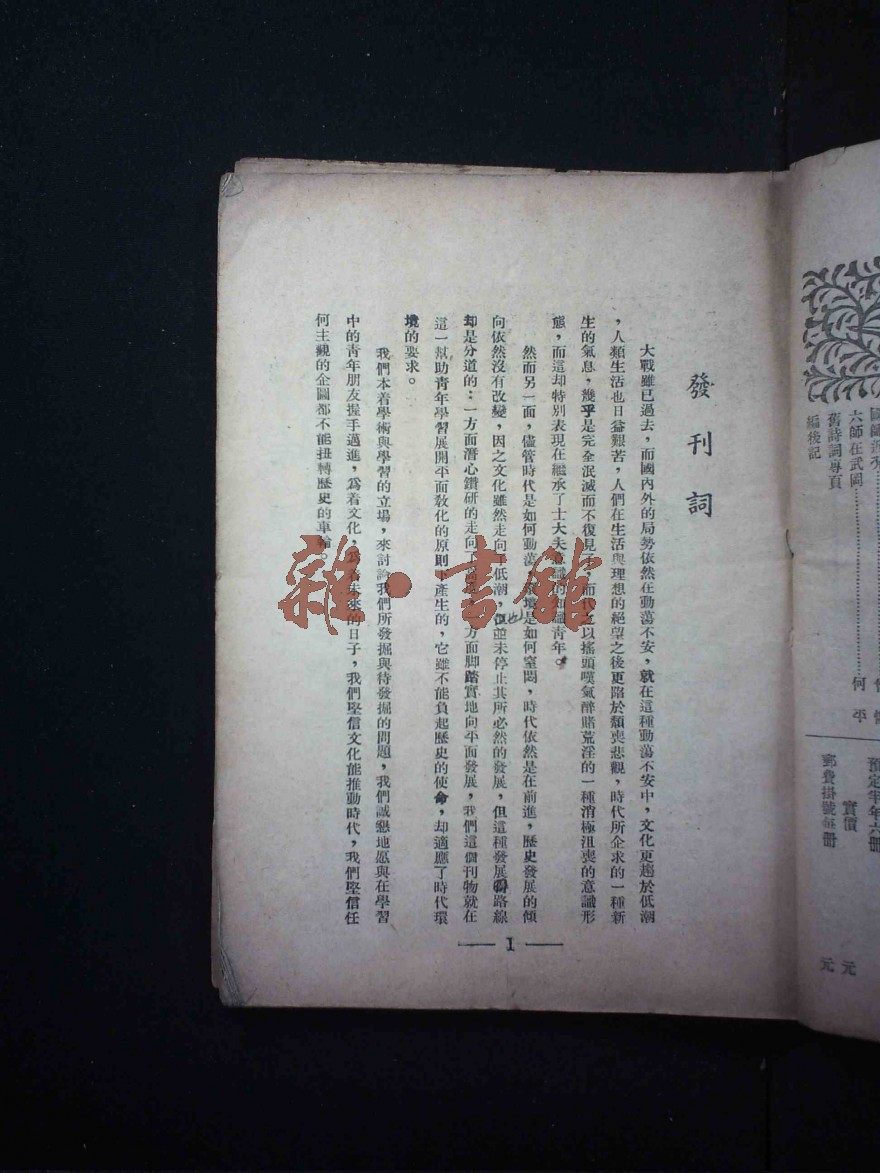 發刊詞
大戰雖已過去，而國內外的局勢依然在動蕩不安，就在這種動蕩不安中，文化更趨於低潮
，人類生活也日益艱苦，人們在生活與理想的絕望之後更陷於頹喪悲觀，時代所企求的一種新
生的氣息，幾乎是完全泯滅而不復見了，而代之以搖頭嘆氣醉賭荒淫的一種消極沮喪的意識形
態，而這却特別表現在繼承了士大夫意識的知識青年。
然而另一面，儘管時代是如何動蕩，環境是如何窒悶，時代依然是在前進，歷史發展的傾
向依然沒有改變，因之文化雖然走向了低潮，但並未停止其所必然的發展，但這種發展的路線
却是分道的：一方面潛心鑽研的走向了，一方面脚踏實地向平面發展，我們這個刊物就在
這一幫助青年學習展開平面敎化的原則下產生的，它雖不能負起歷史的使命，却適應了時代環
境的要求。
我們本着學術與學習的立場，來討論我們所發掘與待發掘的問題，我們誠懇地愿與在學習
中的青年朋友握手邁進，爲着文化，爲着未來的日子，我們堅信文化能推動時代，我們堅信任
何主觀的企圖都不能扭轉歷史的車輪。
1
六師在武岡
舊詩詞專頁
編後記
何平
預定半年六冊
實價 元
郵費掛號每冊 元
雜·書館